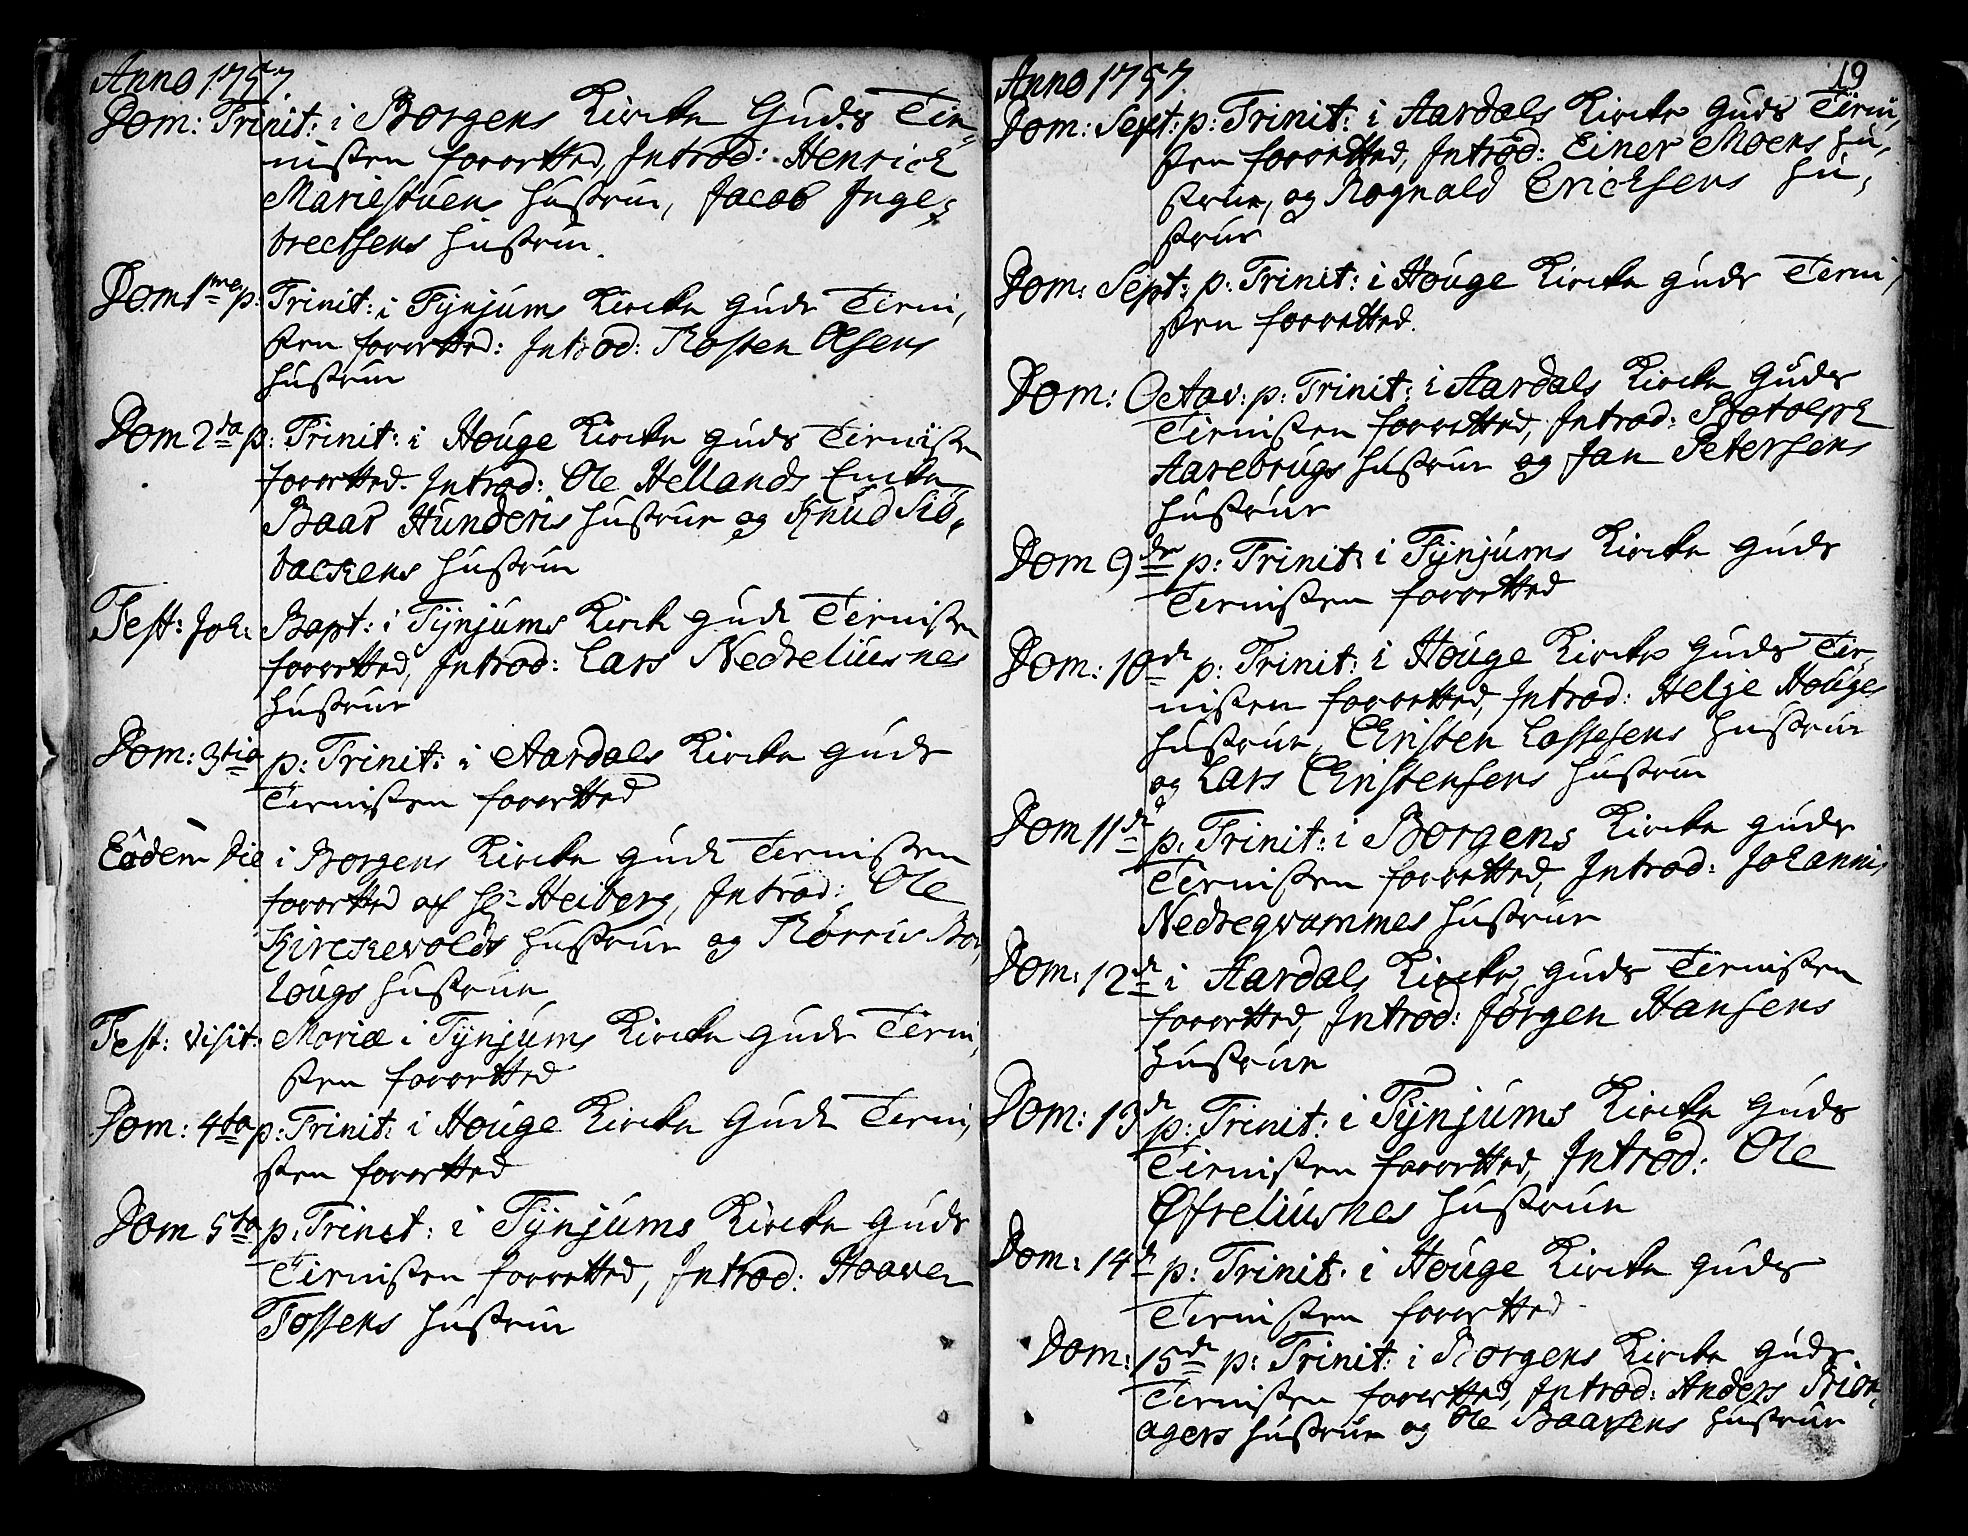 Anno 1757.
Dom: Trinit: i Borgens Kircke Guds Tie-
nisten forretted, Introd: Henrich
Mariestuens Hustrue, Jacob Inge-
brectsens Hustrue.
Dom 1me p: Trinit: i Tÿnjums Kircke Guds Tieni,
sten forretted: Introd: Rosten Olsens
Hustrue
Dom 2da p: Trinit: i Houge Kircke Guds Tienisten
forretted. Introd: Ole Hellands Encke,
Baar Hunderis Hustrue og Knud Siö-
backens Hustrue
Fest: Joh: Bapt: i Tÿnjums Kirck Guds Tienisten
forretted, Introd: Lars Nedreliusnes
Hustrue
Dom: 3tia p: Trinit: i Aardals Kircke Guds
Tienisten forretted
Eôdem Die i Borgens Kircke Guds Tienisten
forretted af Hr Heiberg, Introd: Ole
Kirckevolds Hustrue og Rörris Bor,
lougs Hustrue
Fest: Visit: Mariæ i Tÿnjums Kircke Guds Tieni,
sten forretted
Dom: 4ta p: Trinit: i Houge Kircke Guds Tieni,
sten forretted
Dom 5ta p: Trinit: i Tÿnjums Kircke Guds
Tienisten forretted, Introd: Haaver
Tossens Hustrue
19
Anno 1757.
Dom: Sext: p: Trinit: i Aardals Kircke Guds Tieni,
sten forretted, Introd: Einer Moens Hu,
strue, og Rognald Ericksens Hu,
strue
Dom: Sept: p: Trinit: i Houge Kircke Guds Tieni,
sten forretted.
Dom: Octav: p: Trinit: i Aardals Kircke Guds
Tienisten forretted, Introd: Botolph
Aarebrugs Hustrue og Jan Petersens
Hustrue
Dom 9de p: Trinit: i Tÿnjums Kircke Guds
Tienisten forretted
Dom: 10de p: Trinit: i Houge Kircke Guds Tie-
nisten forretted, Introd: Helje Houges
Hustrue, Christen Lassesens Hustrue
og Lars Christensens Hustrue
Dom 11de p: Trinit: i Borgens Kircke Guds
Tienisten forretted, Introd: Johannis
Nedreqvammes Hustrue
Dom: 12de i Aardals Kircke, Guds Tienisten
forretted, Introd: Jörgen Hansens
Hustrue
Dom: 13de p: Trinit: i Tÿnjums Kircke Guds
Tienisten forretted, Introd: Ole
Øfreliusnes Hustrue
Dom: 14de p: Trinit: i Houge Kircke Guds
Tienisten forretted.
Dom: 15de p: Trinit: i Borgens Kircke Guds
Tienisten forretted, Introd: Anders
agers Hustrue og Ole Baarsens Hustrue